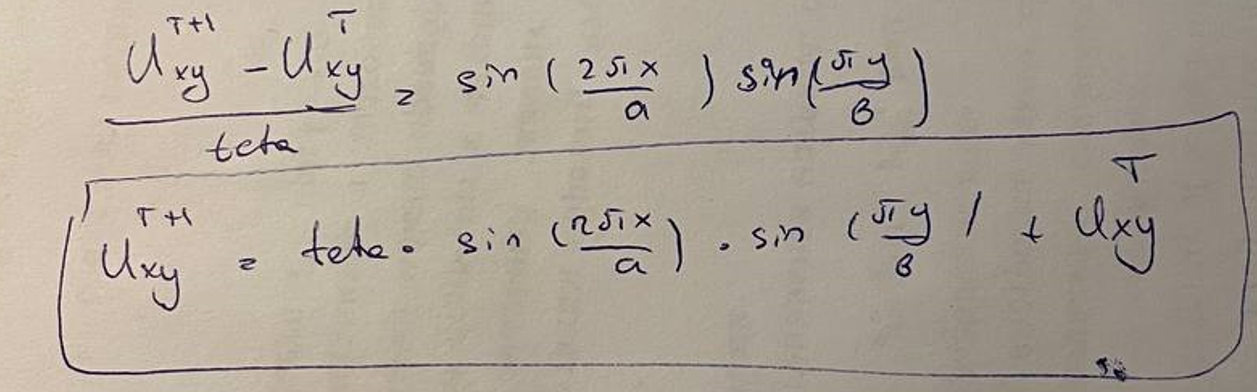 (U_xy^T+1 - U_xy^T) / teta = sin (2πx / a) sin (πy / B)
U_xy^T+1 = teta · sin (2πx / a) · sin (πy / B) + U_xy^T